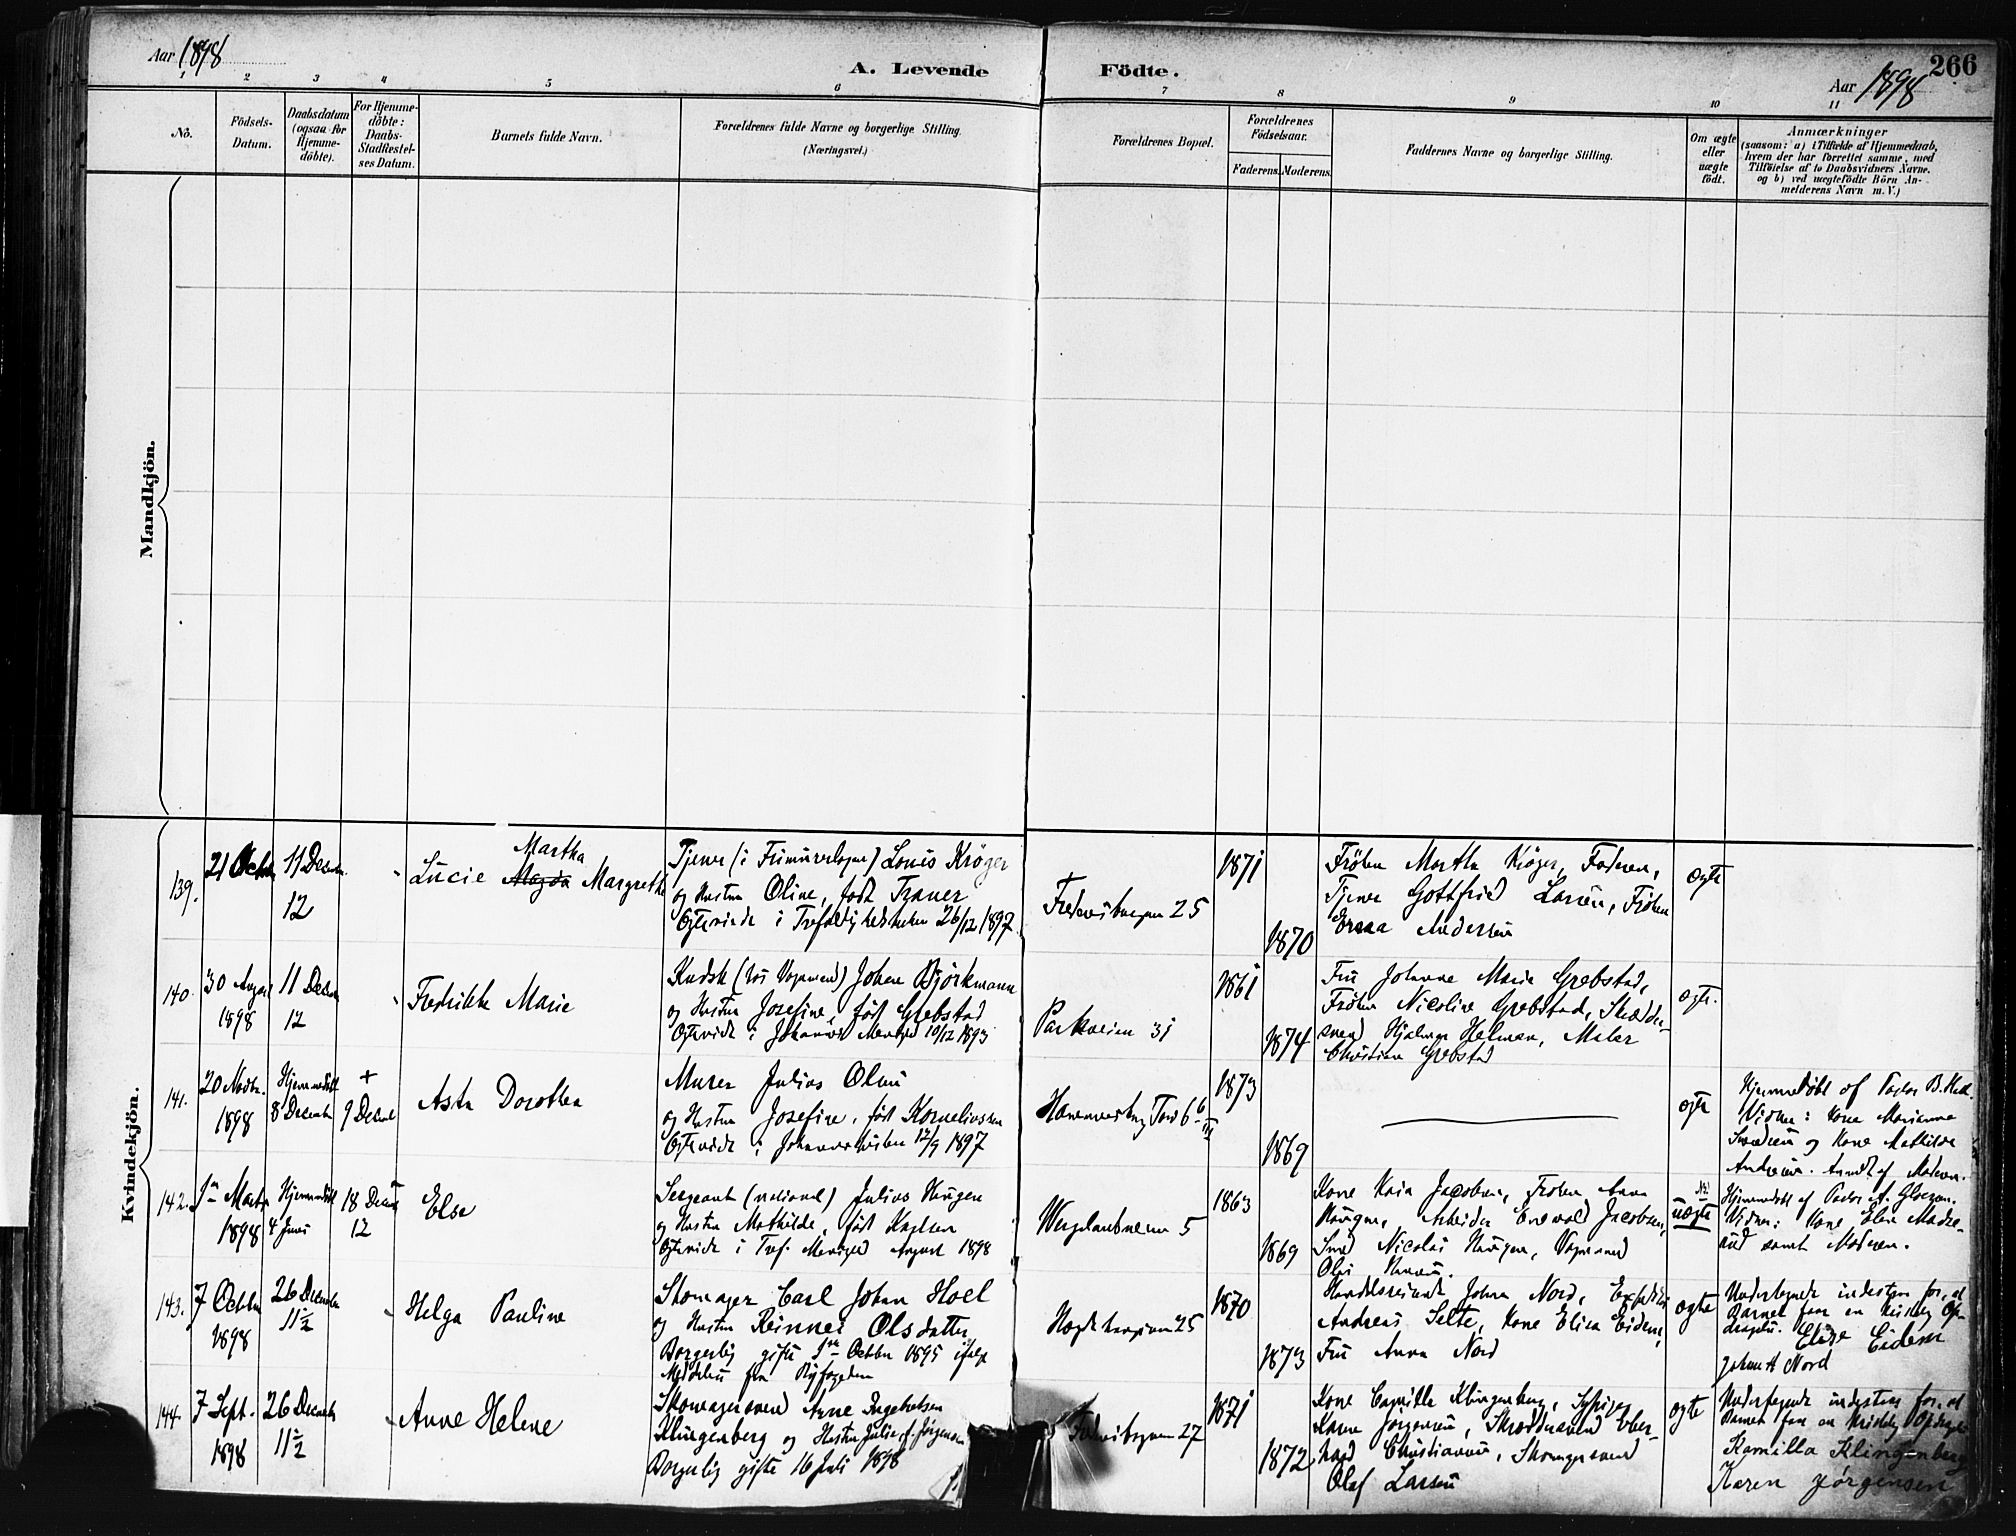 Aar 1898
A. Levende
Födte.
266
Aar 1898
1 2 3 4 5 6 7 8 9 10 11
No.
Födsels-
Datum.
Daabsdatum
(ogsaa for
Hjemme-
döbte).
For Hjemme-
döbte:
Daabs-
Stadfæstel-
ses Datum.
Barnets fulde Navn.
Forældrenes fulde Navne og borgerlige Stilling.
(Næringsvei.)
Forældrenes Bopæl.
Forældrenes
Födselsaar.
Faderens.
Moderens.
Faddernes Navne og borgerlige Stilling.
Om ægte
eller
uægte
födt.
Anmærkninger
(saasom: a) i Tilfælde af Hjemmedaab,
hvem der har forrettet samme, med
Tilföielse af to Daabsvidners Navne.
og b) ved uægtefödte Börn An-
melderens Navn m. V.)
Mandkjön.
Kvindekjön.
139.
21 Octbr
11 Decbr
12
Martha
Lucie Magda Margrethe
Tjener (i Frimurerlogen) Louis Kröger
og Hustru Oline, født
Ægteviede i Trefoldighedskirken 26/12 1897
25
1871
1870
Frøken Martha Krøger, Faderen,
Tjener Gottfried Larsen, Frøken
Andersen
ægte
140.
30
1898
11 Decbr
12
Fredrikke Marie
Kudsk (hos Vognmand) Johan Björkmann
og Hustru Josefine, født Grebstad
Ægteviede i Johannes Menighed 10/12 1893
Parkveien 31
1861
1874
Fru Johanne Marie Grebstad,
Frøken Nicoline Grebstad, Skrædder-
svend Hjalmar Helman, Maler
Christian Grebstad
ægte.
141.
20 Novbr.
1898
Hjemmedöbt
8 Decembr
+
9 Decbr
Asta Dorothea
Murer Julius Olsen
og Hustru Josefine, født Korneliussen
Ægteviede i Johanneskirken 12/9 1897
1873
1869
ægte
Hjemmedöbt af Pastor B.
Vidner: Kone Marianne
og Kone Mathilde
Anmeldt af Moderen.
142.
1898
Hjemmedöbt
4 Juni
18 Decbr
12
Else
Sergeant (national) Julius Haugen
og Hustru Mathilde, født Karlsen
Ægteviede i Tref. Menighed August 1898
Wergelandsveien 5
1863
1869
Kone Kaia Jacobsen, Frøken Anna
Haugen, Arbeider Jacobsen,
Smed Nicolai Haugen, Vognmand
Ole
uægte
Hjemmedöbt af Pastor
Vidner: Kone
samt Moderen.
143.
7 Octbr
1898
26 Decembr
11½
Helga Pauline
Skomager Carl Johan Hoel
og Hustru Olsdatter
Borgerlig gifte Octbr 1895 ifølge
Meddelelse fra Byfogden
25
1870
1873
Handelsreisende Johan Nord,
Andreas Selte, Kone Elise Eidem,
Fru Anna Nord
ægte
Undertegnede indestaar for, at
Barnet faar en kristelig Op-
dragelse. Elise Eidem
Johan A Nord
144.
7 Sept.
1898
26 Decembr
11½
Anne Helene
Skomagersvend Arne Ingebretsen
Klingenberg og Hustru Julie f. Jörgensen
Borgerlig gifte 16 Juli 1898
27
1871
1872
Kone Camilla Klingenberg, Sypige
Karen Jörgensen, Skræddersvend Eber-
hard Christiansen, Skomagersvend
Olaf Larsen
ægte
Undertegnede indestaar for, at
Barnet faar en kristelig Opdragelse
Kamilla Klingenberg
Karen Jörgensen